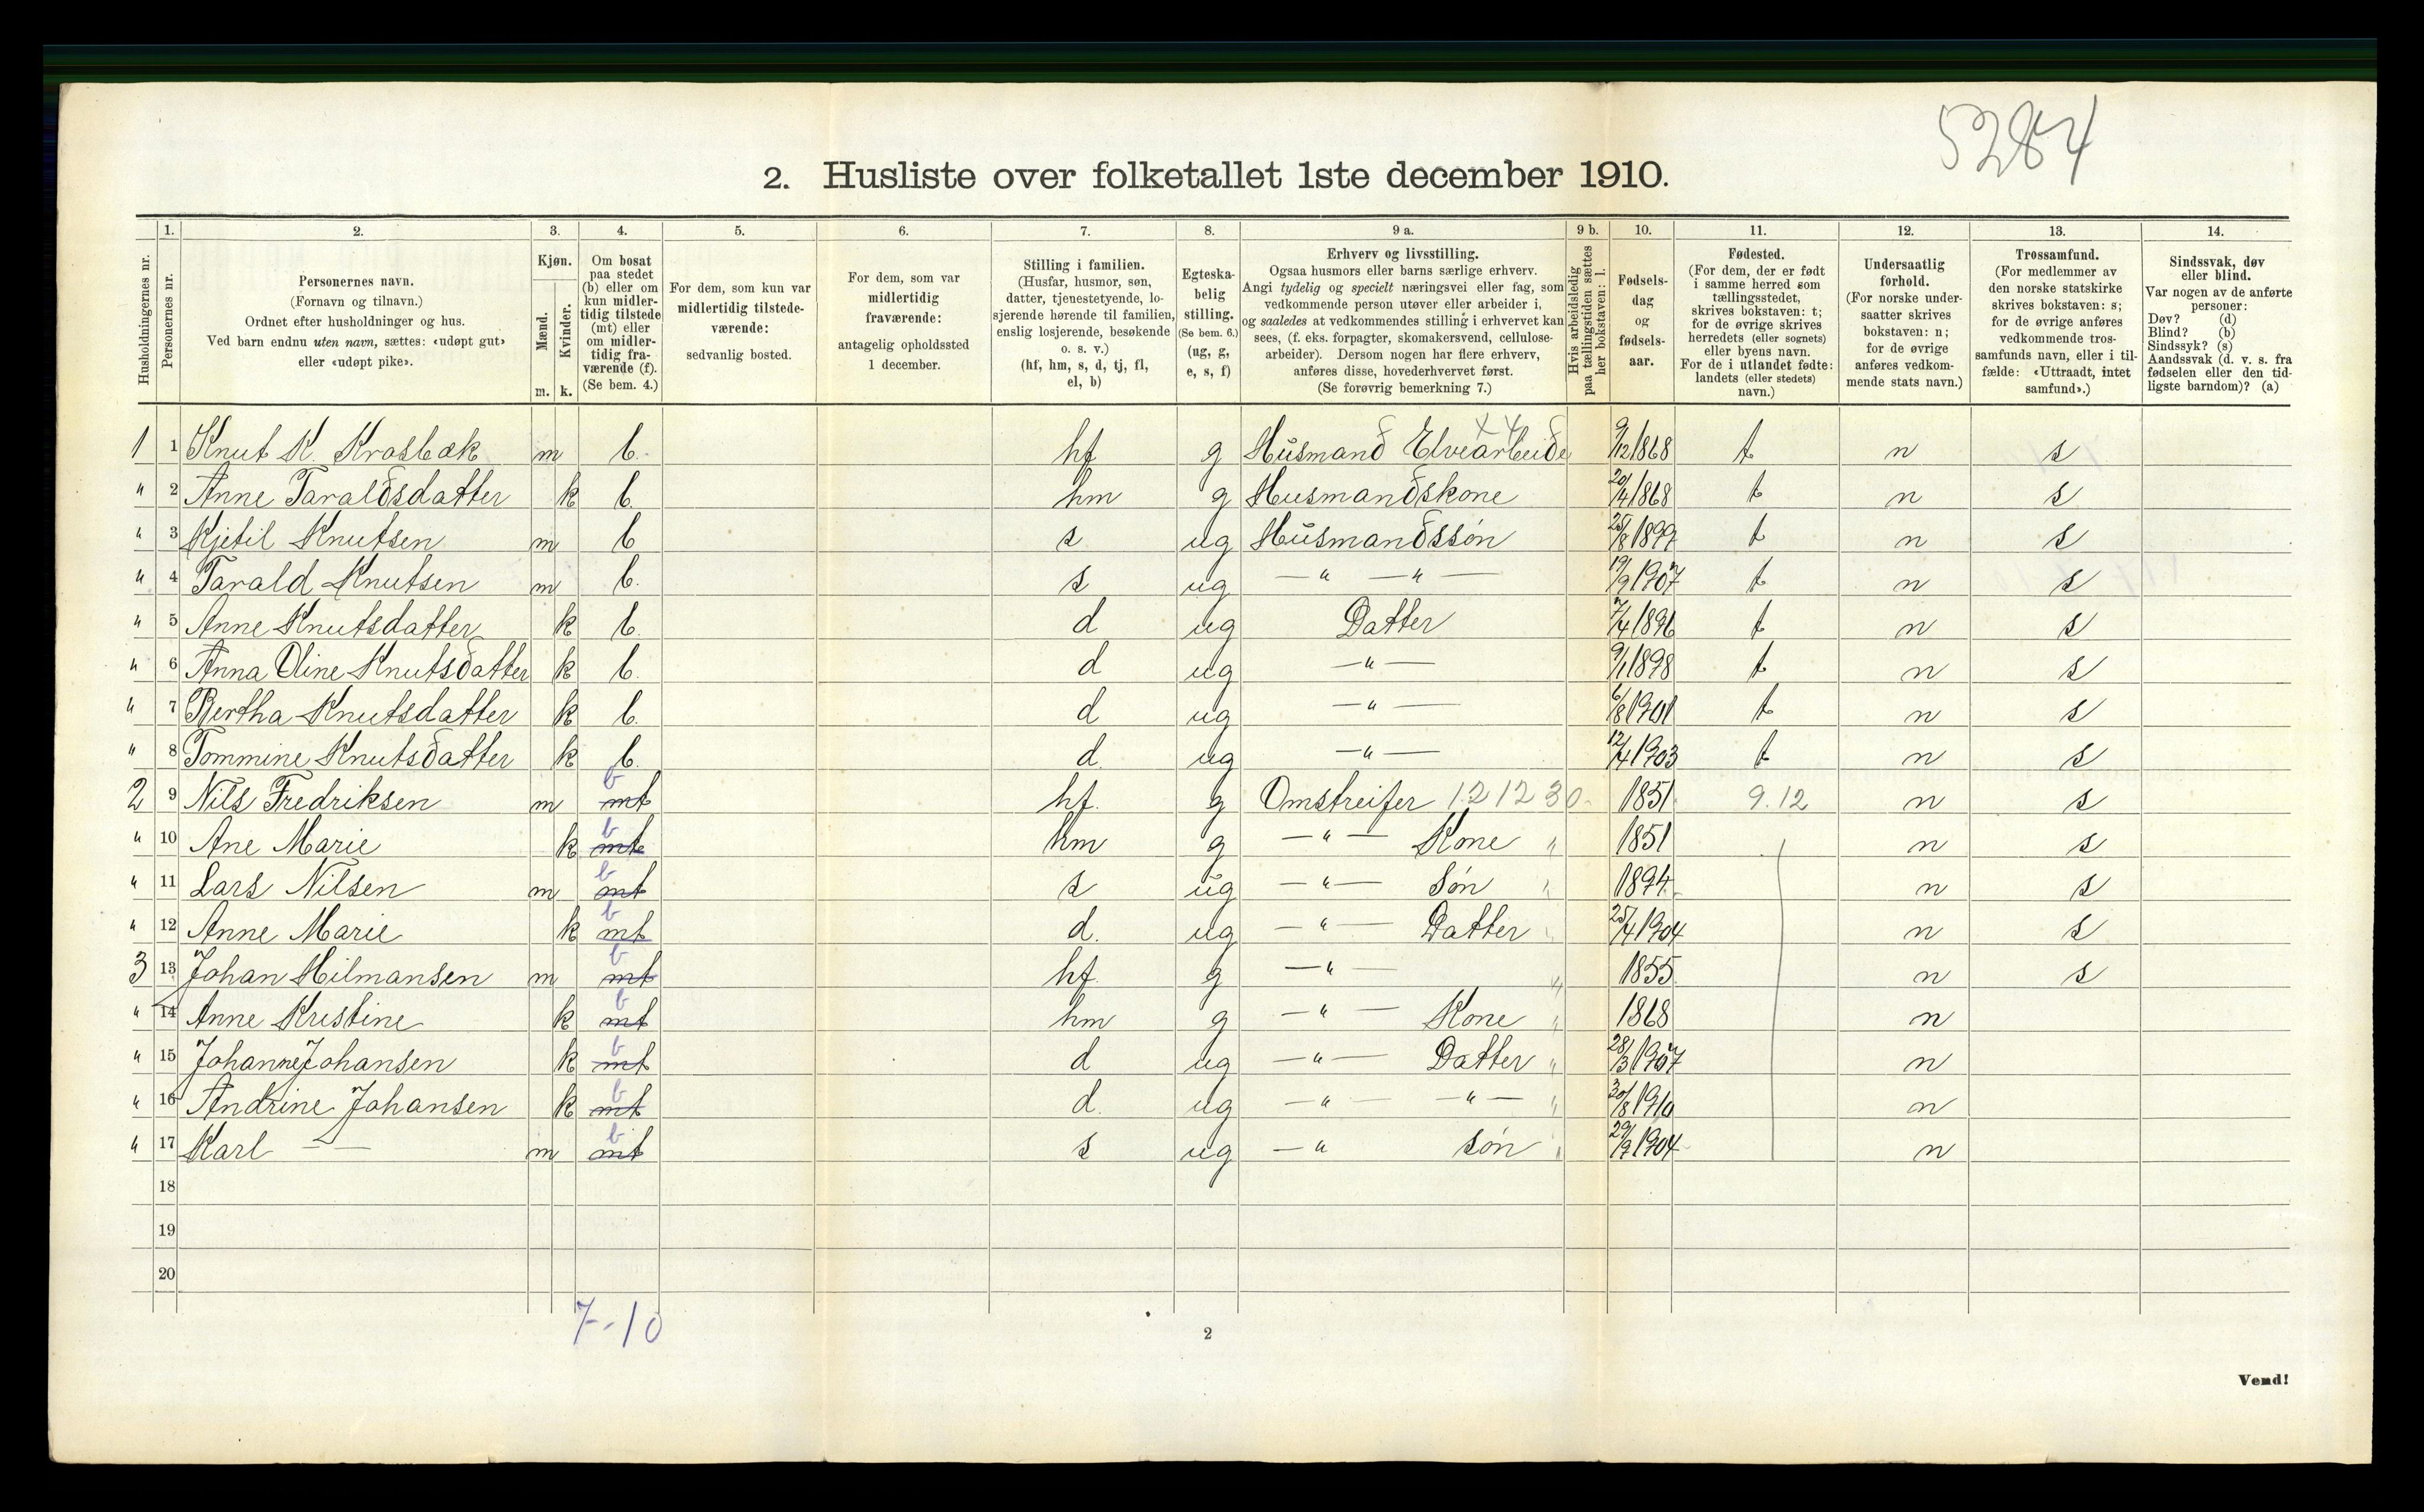 5284
2. Husliste over folketallet 1ste december 1910.
Husholdningernes nr.
1.
Personernes nr.
2.
Personernes navn.
(Fornavn og tilnavn.)
Ordnet efter husholdninger og hus.
Ved barn endnu uten navn, sættes: «udøpt gut»
eller «udøpt pike».
3.
Kjøn.
Mænd.
Kvinder.
m. k.
4.
Om bosat
paa stedet
(b) eller om
kun midler-
tidig tilstede
(mt) eller
om midler-
tidig fra-
værende (f).
(Se bem. 4.)
5.
For dem, som kun var
midlertidig tilstede-
værende:
sedvanlig bosted.
6.
For dem, som var
midlertidig
fraværende:
antagelig opholdssted
1 december.
7.
Stilling i familien.
(Husfar, husmor, søn,
datter, tjenestetyende, lo-
sjerende hørende til familien,
enslig losjerende, besøkende
o. s. v.)
(hf, hm, s, d, tj, fl,
el, b)
8.
Egteska-
belig
stilling.
(Se bem. 6.)
(ug, g,
e, s, f)
9 a.
Erhverv og livsstilling.
Ogsaa husmors eller barns særlige erhverv.
Angi tydelig og specielt næringsvei eller fag, som
vedkommende person utøver eller arbeider i,
og saaledes at vedkommendes stilling i erhvervet kan
sees, (f. eks. forpagter, skomakersvend, cellulose-
arbeider). Dersom nogen har flere erhverv,
anføres disse, hovederhvervet først.
(Se forøvrig bemerkning 7.)
9 b.
Hvis arbeidsledig
paa tællingstiden sættes
her bokstaven: l.
10.
Fødsels-
dag
og
fødsels-
aar.
11.
Fødested.
(For dem, der er født
i samme herred som
tællingsstedet,
skrives bokstaven: t;
for de øvrige skrives
herredets (eller sognets)
eller byens navn.
For de i utlandet fødte:
landets (eller stedets)
navn.)
12.
Undersaatlig
forhold.
(For norske under-
saatter skrives
bokstaven: n;
for de øvrige
anføres vedkom-
mende stats navn.)
13.
Trossamfund.
(For medlemmer av
den norske statskirke
skrives bokstaven: s;
for de øvrige anføres
vedkommende tros-
samfunds navn, eller i til-
fælde: «Uttraadt, intet
samfund».)
14.
Sindssvak, døv
eller blind.
Var nogen av de anførte
personer:
Døv? (d)
Blind? (b)
Sindssyk? (s)
Aandssvak (d. v. s. fra
fødselen eller den tid-
ligste barndom)? (a)
x4
1 1 Knut K. Krosbæk m b. hf g Husmand Elvearbeide 9/12 1868 t n s
" 2 Anne Taraldsdatter k b. hm g Husmandskone 20/4 1868 t n s
" 3 Kjetil Knutsen m b s ug Husmandssøn 25/8 1899 t n s
" 4 Tarald Knutsen m b. s ug — " — " — 19/9 1907 t n s
" 5 Anne Knutsdatter k b. d ug Datter 7/4 1896 t n s
" 6 Anna Oline Knutsdatter k b. d ug — " — 9/1 1898 t n s
" 7 Bertha Knutsdatter k b. d ug — " — 6/8 1901 t n s
" 8 Tommine Knutsdatter k b. d. ug — " — 12/4 1903 t n s
2 9 Nils Fredriksen m mt b hf. g Omstreifer 121230 1851 9.12 n s
" 10 Ane Marie k mt b hm g — " — Kone " 1851 n s
" 11 Lars Nilsen m mt b s ug — " — Søn " 1894 n s
" 12 Anne Marie k mt b d. ug — " — Datter " 25/4 1904 n s
3 13 Johan Hilmansen m mt b hf. g — " — " 1855 n s
" 14 Anne Kristine k mt b hm g — " — Kone " 1868 n
" 15 Johanne Johansen k mt b d ug — " — Datter " 28/3 1907 n
" 16 Andrine Johansen k mt b d. ug — " — — " — " 30/8 1910 n
" 17 Karl — — m mt b s ug — " Søn " 29/9 1904 n
18
19
20
7-10
2
Vend!